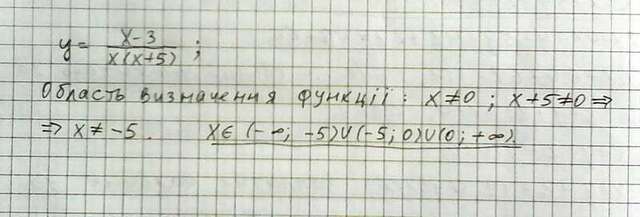 y = (x-3)/(x(x+5)) ;
Область визначення функції : x ≠ 0 ; x+5≠0 ⇒
⇒ x ≠ -5. x ∈ (-∞; -5)∪(-5; 0)∪(0; +∞).